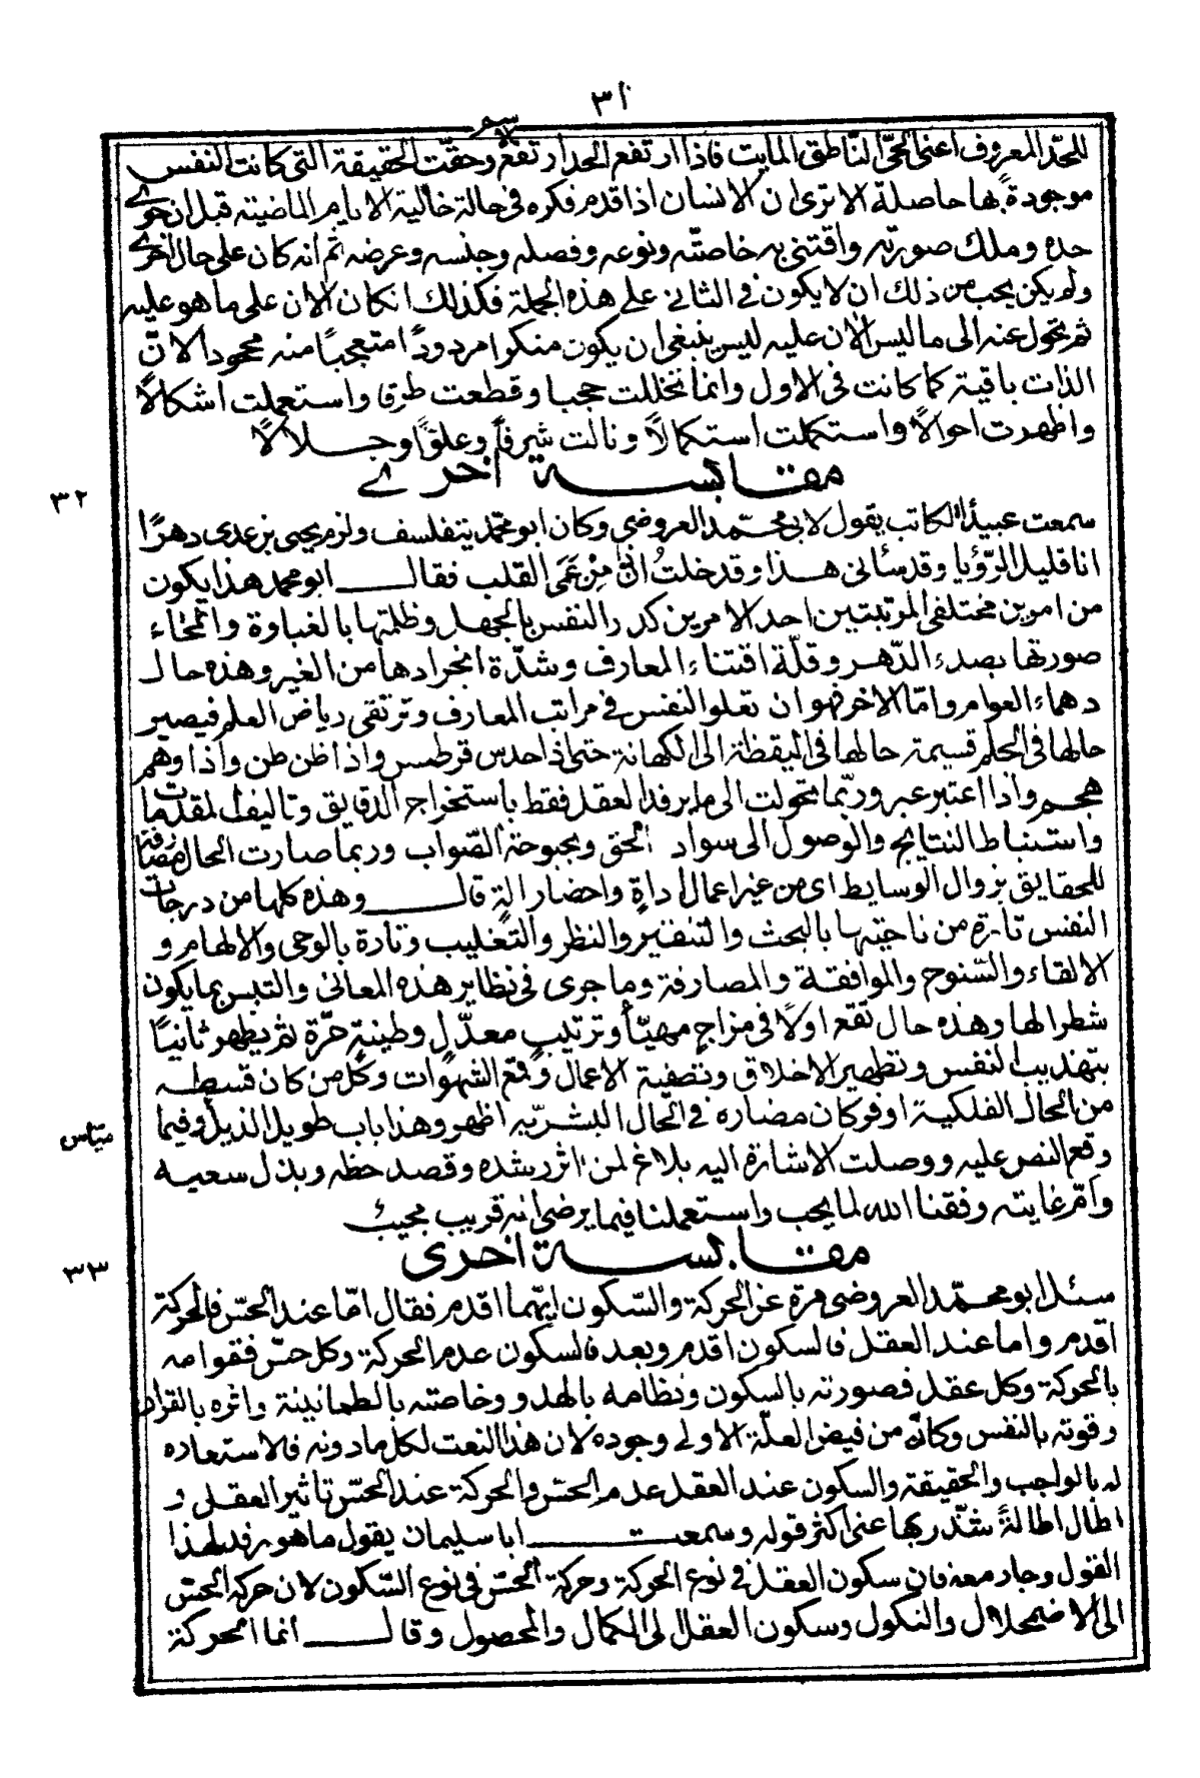 ٣١
للحد المعروف اعنى الحىّ الناطق المايت فاذا ارتفع الحد ارتفع وحقّت الحقيقة التى كانت النفس
موجودةً بها حاصلة الا ترى ان الانسان اذا قدم فكره فى حالة خالية الايام الماضيته قبل ان حوى
حده وملك صورته واقتنى به خاصتّه ونوعه وفصله وجنسه وعرضه ثم انه كان على حال اخرى
ولم يكن يجب من ذلك ان لا يكون فى الثانى على هذه الجملة فكذلك ان كان الان على ما هو عليه
ثم يتحول عنه الى ما ليس الان عليه ليس ينبغى ان يكون منكرا مردودًا متعجبًا منه مجحودا لانّ
الذات باقية كما كانت فى الاول وانما تخللت حجبا وقطعت طرقا واستعملت اشكالاً
واظهرت احوالاً واستكملت استكمالاً ونالت شرفاً وعلوًّا وجلالاً
مقابسة اخرى
٣٢
سمعت عبيد الكاتب يقول لابى محمّد العروضى وكان ابو محمّد يتفلسف ولزم يحيى بن عدى دهرًا
انا قليل الرّؤيا وقد سأنى هذا وقد خلتُ انّى مِنْ عَمَى القلب فقال ابو محمد هذا يكون
من امرين مختلفى المرتبتين احد الامرين كدر النفس بالجهل وظلمتها بالغباوة وانمحاء
صورتها بصدء الدّهر وقلّة اقتناء المعارف وشدّة انجرادها من الغير وهذه حال
دهماء العوام وامّا الاخر فهو ان تعلو النفس فى مراتب المعارف وترتقى رياض العلم فيصير
حالها فى الحلم قسيمة حالها فى اليقظة الى الكهانة حتى اذا حدس قرطس واذا ظن طن واذا وهم
هجم واذا اعتبر عبر وربّما تحولت الى ما يرفد العقل فقط باستخراج الدقايق وتاليف المقدمات
واستنباط النتايج والوصول الى سواد الحق وبحبوحة الصّواب وربما صارت الحال مصارفة
للحقايق بزوال الوسايط اى من غير اعمال اداةٍ واحضار الةٍ قال وهذه كلها من درجات
النفس تارة من ناحيتها بالبحث والتنقير والنظر والتغليب وتارة بالوحى والالهام و
الالقاء والسّنوح والموافقة والمصارفة وما جرى فى نظاير هذه المعانى والتبس بما يكون
شطرا لها وهذه حال تقع اولاً فى مزاج مهيّأ وترتيب معدّل وطينةٍ حرّة ثم يظهر ثانيًا
بتهذيب النفس وتطهير الاخلاق وتصفية الاعمال وقمع الشهوات وكل من كان قسطه
من الحال الفلكية اوفر كان مضاره فى الحال البشريّه اظهر وهذا باب طويل الذيل وفيما
وقع النص عليه ووصلت الاشارة اليه بلاغ لمن اثر رشده وقصد حظه وبذل سعيه
وامّ غايته وفقنا الله لما يجب واستعملنا فيما يرضى انه قريب مجيب
مقابسة اخرى
٣٣
سئل ابو محمّد العروضى مرة عن الحركة والسّكون ايّهما اقدم فقال امّا عند الحسّ فالحركة
اقدم واما عند العقل فالسكون اقدم وبعد فالسكون عدم الحركة وكل حسّ فقوامه
بالحركة وكل عقل فصورته بالسكون ونظامه بالهدو وخاصته بالطمانينة واثره بالقرار
وقوته بالنفس وكأنه من فيض العلّة الاولى وجوده لان هذا النعت لكل ما دونه فالاستعاده
له بالواجب والحقيقة والسكون عند العقل عدم الحسّ والحركة عند الحسّ تاثير العقل و
اطال اطالةً شذّر بها عنى اكثر قوله وسمعت ابا سليمان يقول ما هو رفد لهذا
القول وجار معه فان سكون العقل فى نوع الحركة وحركة الحسّ فى نوع السّكون لان حركة الحسّ
الى الاضمحلال والنكول وسكون العقل الى الكمال والحصول وقال انما الحركة